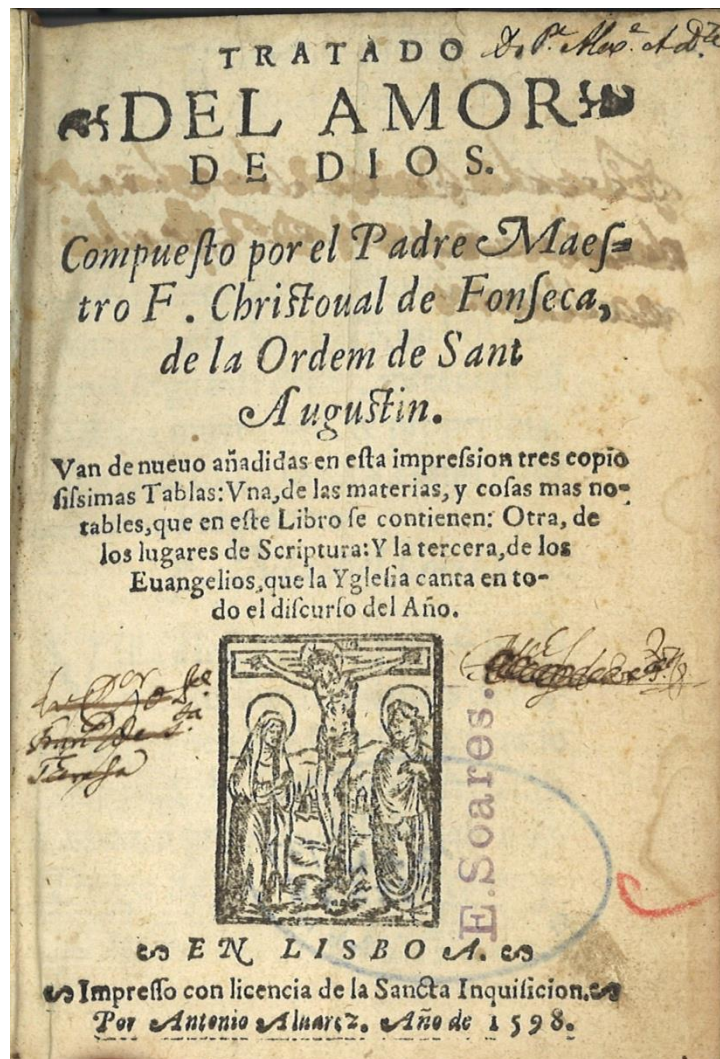 TRATADO
DEL AMOR
DE DIOS.
Compuesto por el Padre Maes=
tro F. Christoual de Fonseca,
de la Ordem de Sant
Augustin.
Van de nueuo añadidas en esta impression tres copio
sissimas Tablas: Vna, de las materias, y cosas mas no-
tables, que en este Libro se contienen: Otra, de
los lugares de Scriptura: Y la tercera, de los
Euangelios, que la Yglesia canta en to-
do el discurso del Año.
E. Soares.
EN LISBOA.
Impresso con licencia de la Sancta Inquisicion.
Por Antonio Aluarez. Año de 1598.